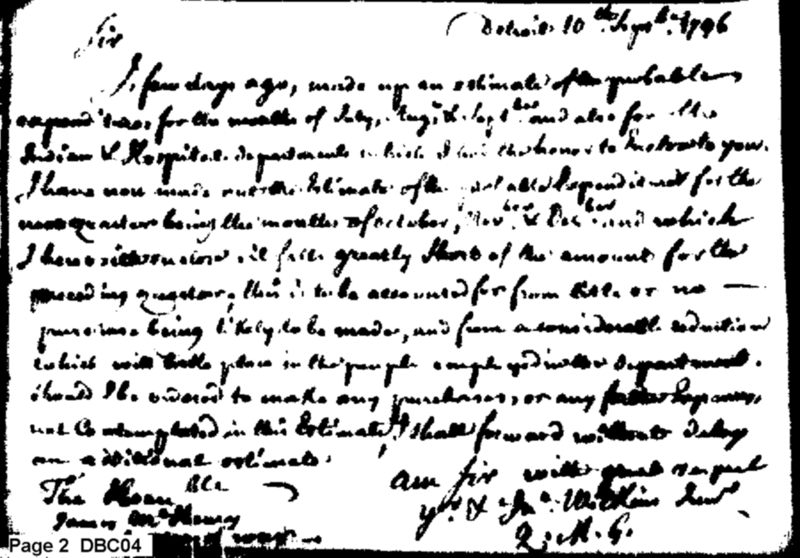 Detroit 10th Septbr. 1796
Sir
A few days ago, made up an estimate of the probable
expenditures for the months of July, Augt. & Septber and also for the
Indian & Hospital departments which I had the honor to to you.
I have now made out the Estimate of the probable Expenditures for the
next quarter being the months of October, Novber & Decber and which
I herewith enclose, it falls greatly short of the amount for the
preceeding quarter, this is to be accounted for from little or no —
purchases being likely to be made, and from a considerable reduction
which will take place in the people employed in the department.
should I be ordered to make any purchases, or any Expences,
not Contemplated in this Estimate, I shall forward without delay
an additional estimate.
am Sir with great respect
The Honble
yr. & Jno. Wilkins Junr.
James McHenry
Q. M. G.
of war
Page 2 DBC04